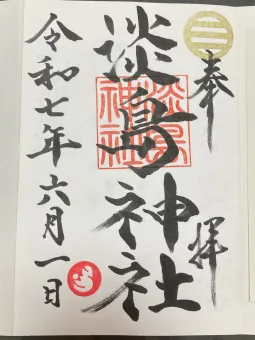 奉拝
淡島神社
淡島
神社
令和七年六月一日